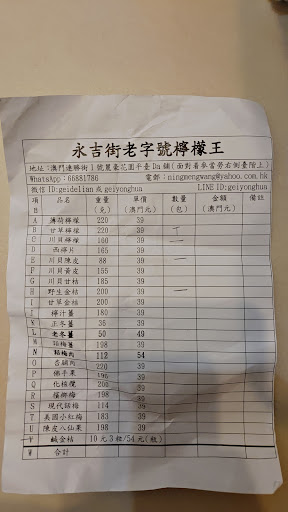 永吉街老字號檸檬王
地址：澳門連勝街1號麗豪花園平臺Da鋪(面對着麥當勞右側臺階上)
WhatsApp：66881786 電郵：ningmengwang@yahoo.com.hk
微信 ID:geidelian 或 geiyonghua LINE ID:geiyonghua
項目 品名 重量(克) 單價(澳門元) 數量(包) 金額(澳門元) 備註
A 薄荷檸檬 220 39
B 甘草檸檬 220 39 一
C 川貝檸檬 160 39 二
D 西檸片 165 39
E 川貝陳皮 88 39 一
F 川貝黃皮 155 39
G 川貝甘桔 185 39
H 野生金桔 100 39 一
I 甘草金桔 200 39
J 檸汁薑 180 39
K 正冬薑 35 39
L 老冬薑 50 49
M 話梅薑 198 39
N 話梅肉 112 54
O 杏脯肉 220 39
P 佛手果 196 39
Q 化核欖 200 39
R 擂槨梅 198 39
S 現代話梅 114 39
T 美國小紅梅 183 39
U 陳皮八仙果 198 39
V 鹹金桔 10元3粒/54元(瓶)
W 合計